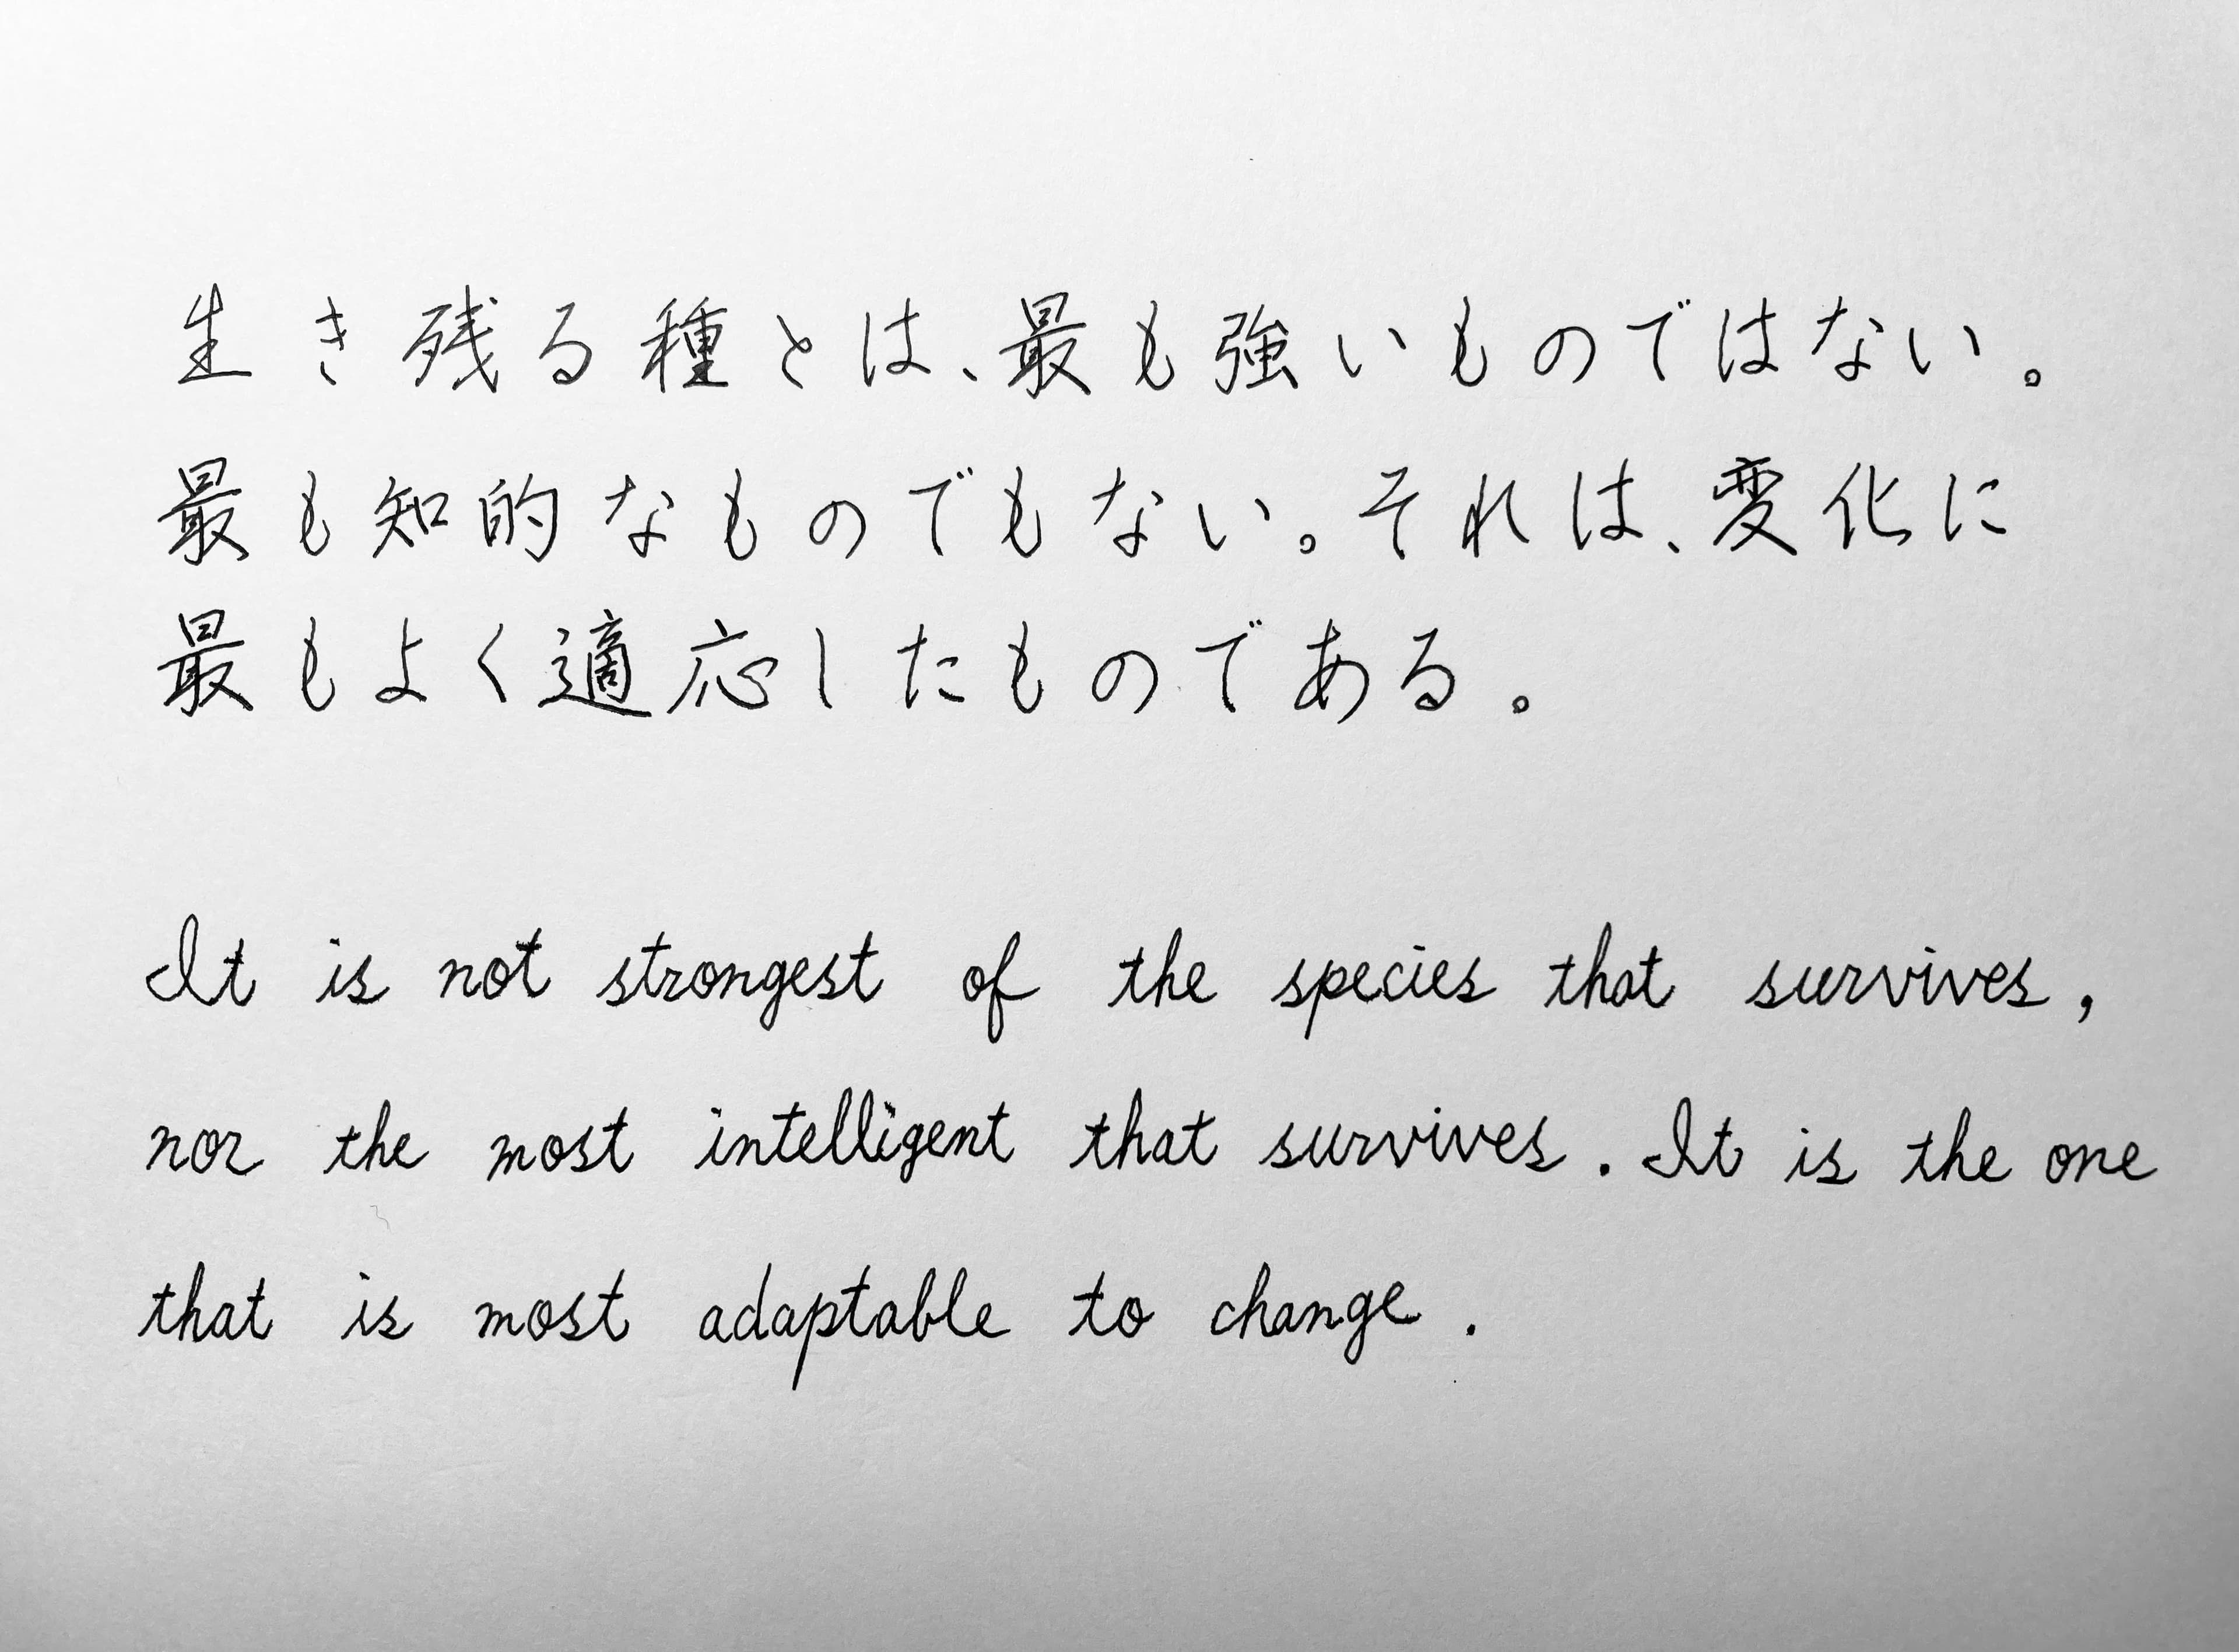 生き残る種とは、最も強いものではない。
最も知的なものでもない。それは、変化に
最もよく適応したものである。
It is not strongest of the species that survives,
nor the most intelligent that survives. It is the one
that is most adaptable to change.